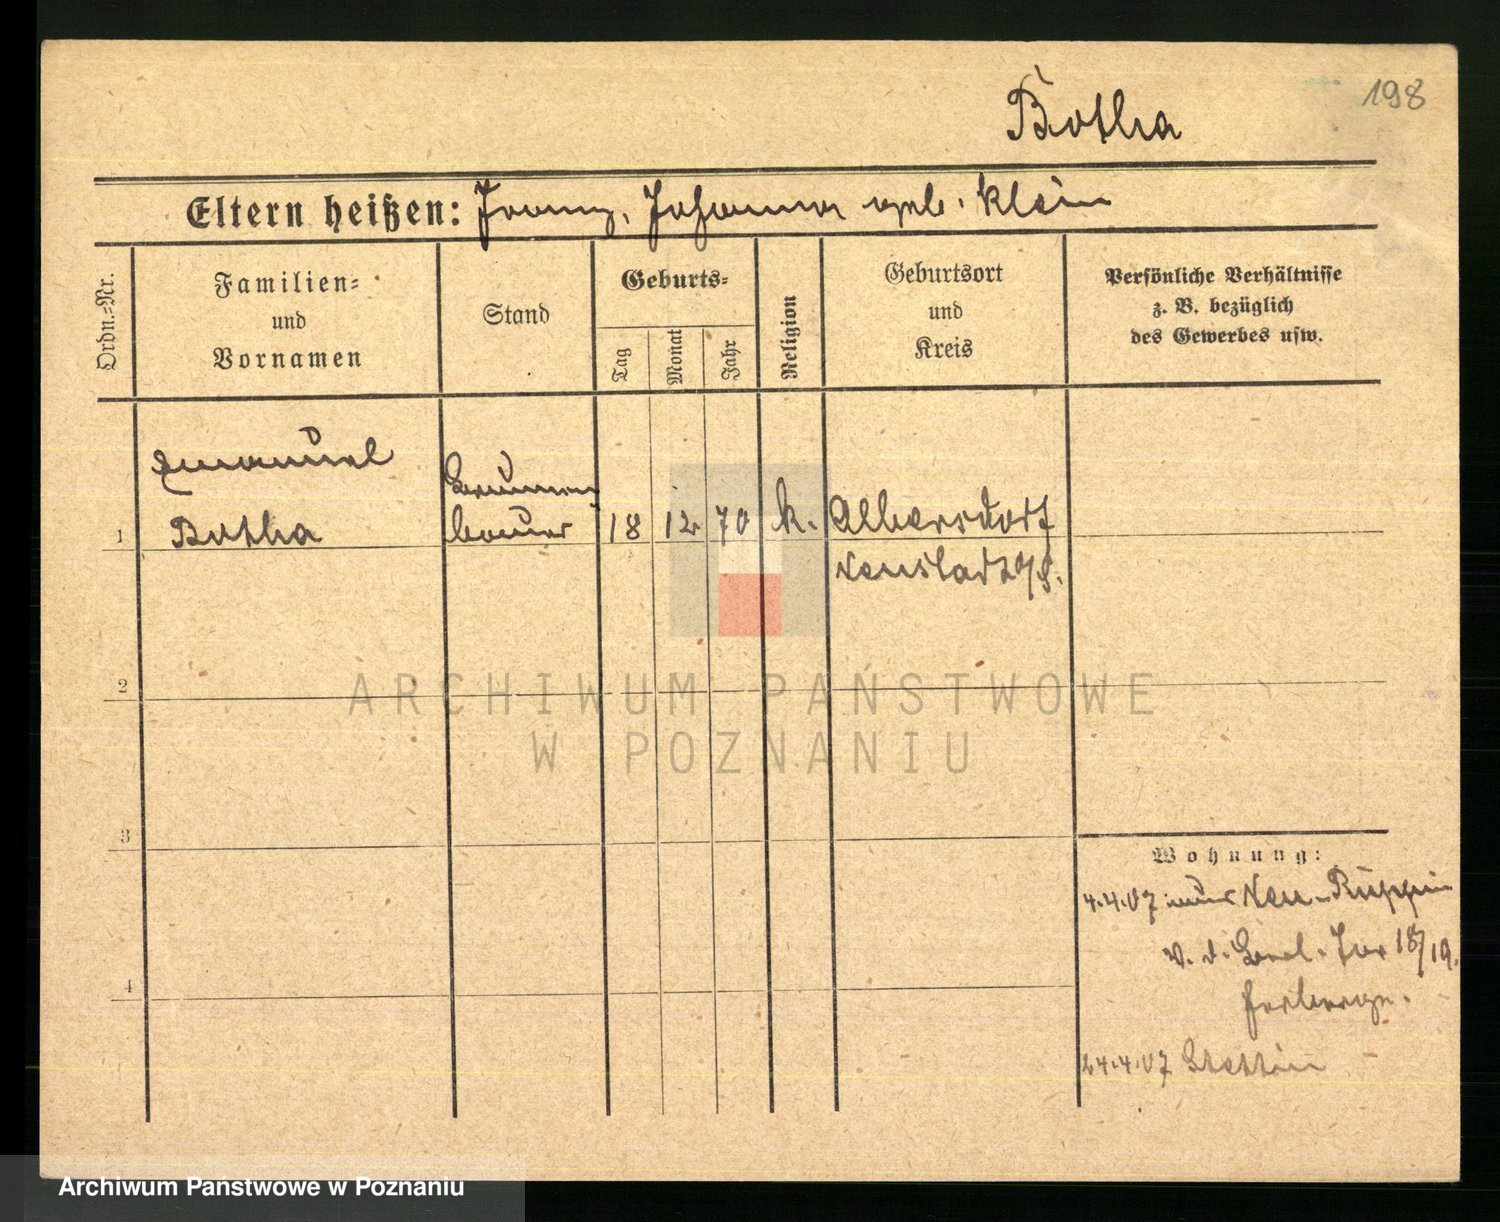 198
Botha
Eltern heißen: Franz, Johanna geb. Klein
Ordn.-Nr.
Familien-
und
Vornamen
Stand
Geburts-
Tag
Monat
Jahr
Religion
Geburtsort
und
Kreis
Persönliche Verhältnisse
z. B. bezüglich
des Gewerbes usw.
Emanuel
Brunnen
1 Botha bauer 18 12 70 k. Albersdorf
Neustadt O/S.
2
ARCHIWUM PAŃSTWOWE
W POZNANIU
3
Wohnung:
4.4.07 aus Neu-Ruppin
v. d. 18/19.
Herberge.
4
24.4.07 Stettin
Archiwum Państwowe w Poznaniu